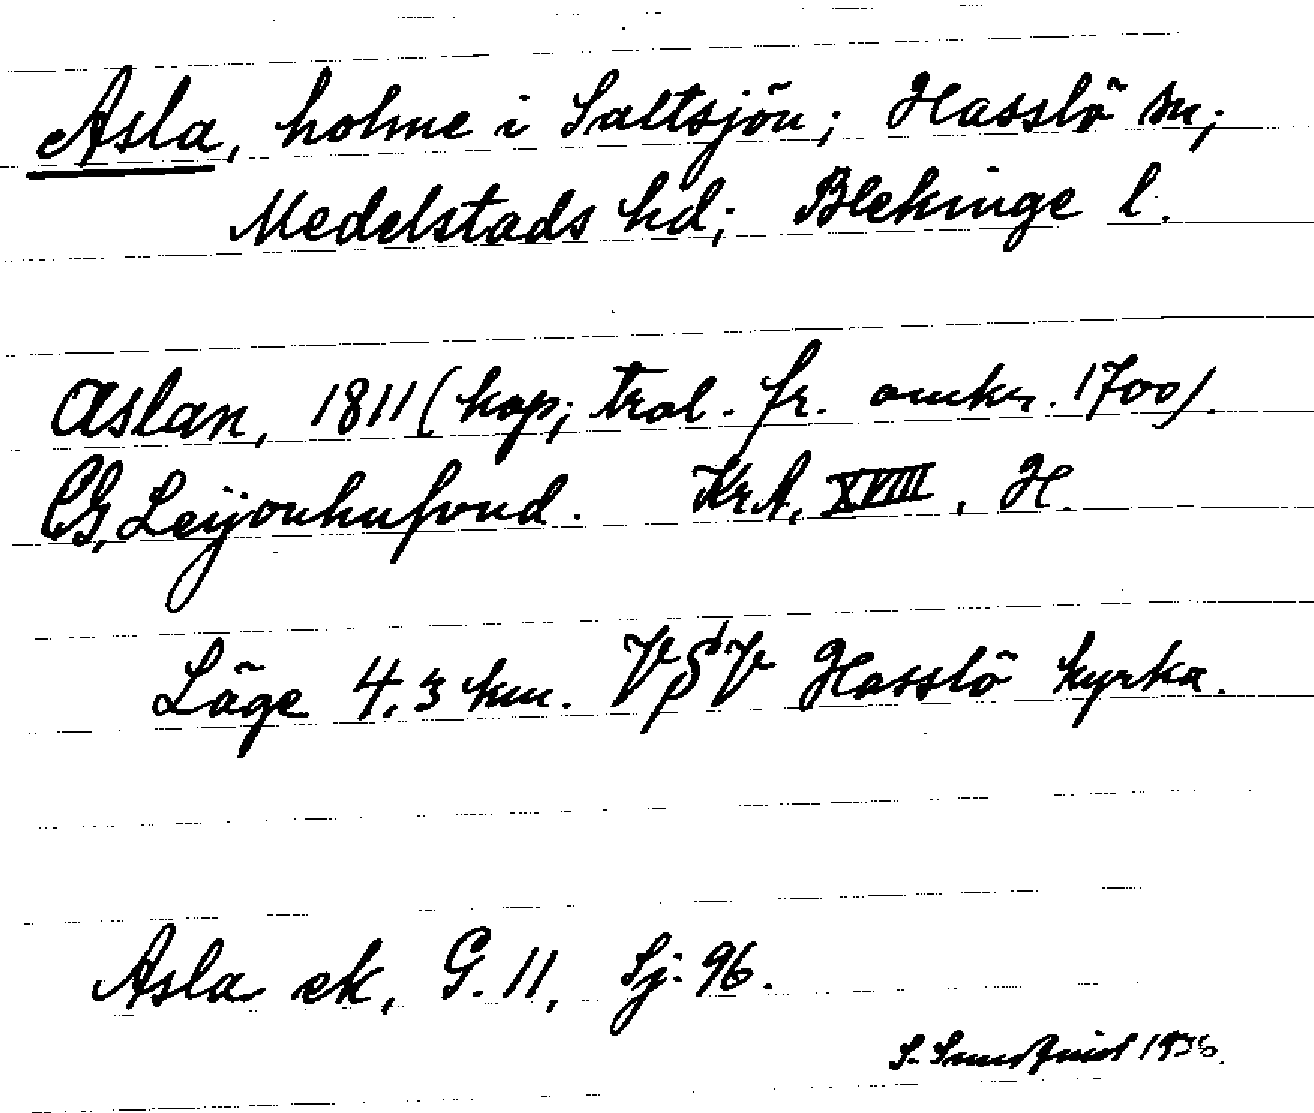 Asla, holme i Saltsjön; Hasslö sn;
Medelstads hd; Blekinge l.
Aslan, 1811 (kop; trol. fr. omkr. 1700).
CG, Leijonhufvud. KrA, XVIII, H.
Läge 4,3 km. VSV Hasslö kyrka.
Asla ek, G. 11, Sj: 96.
S.